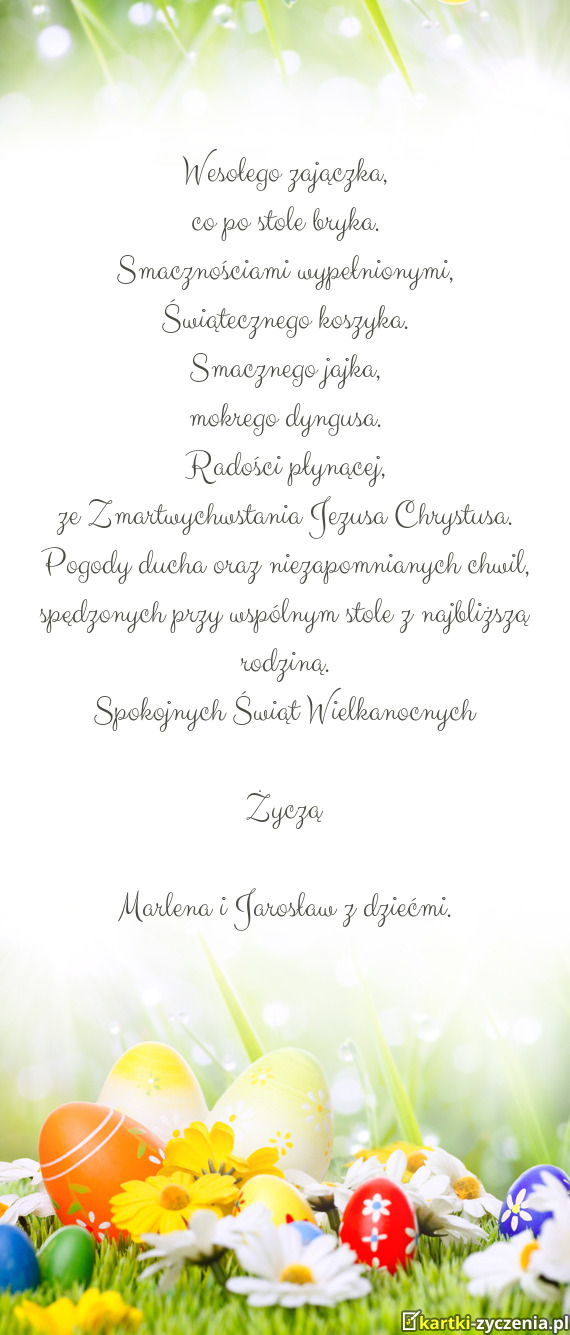 Wesołego zajączka,
co po stole bryka.
Smacznościami wypełnionymi,
Świątecznego koszyka.
Smacznego jajka,
mokrego dyngusa.
Radości płynącej,
ze Zmartwychwstania Jezusa Chrystusa.
Pogody ducha oraz niezapomnianych chwil,
spędzonych przy wspólnym stole z najbliższą
rodziną.
Spokojnych Świąt Wielkanocnych
Życzą
Marlena i Jarosław z dziećmi.
kartki-zyczenia.pl